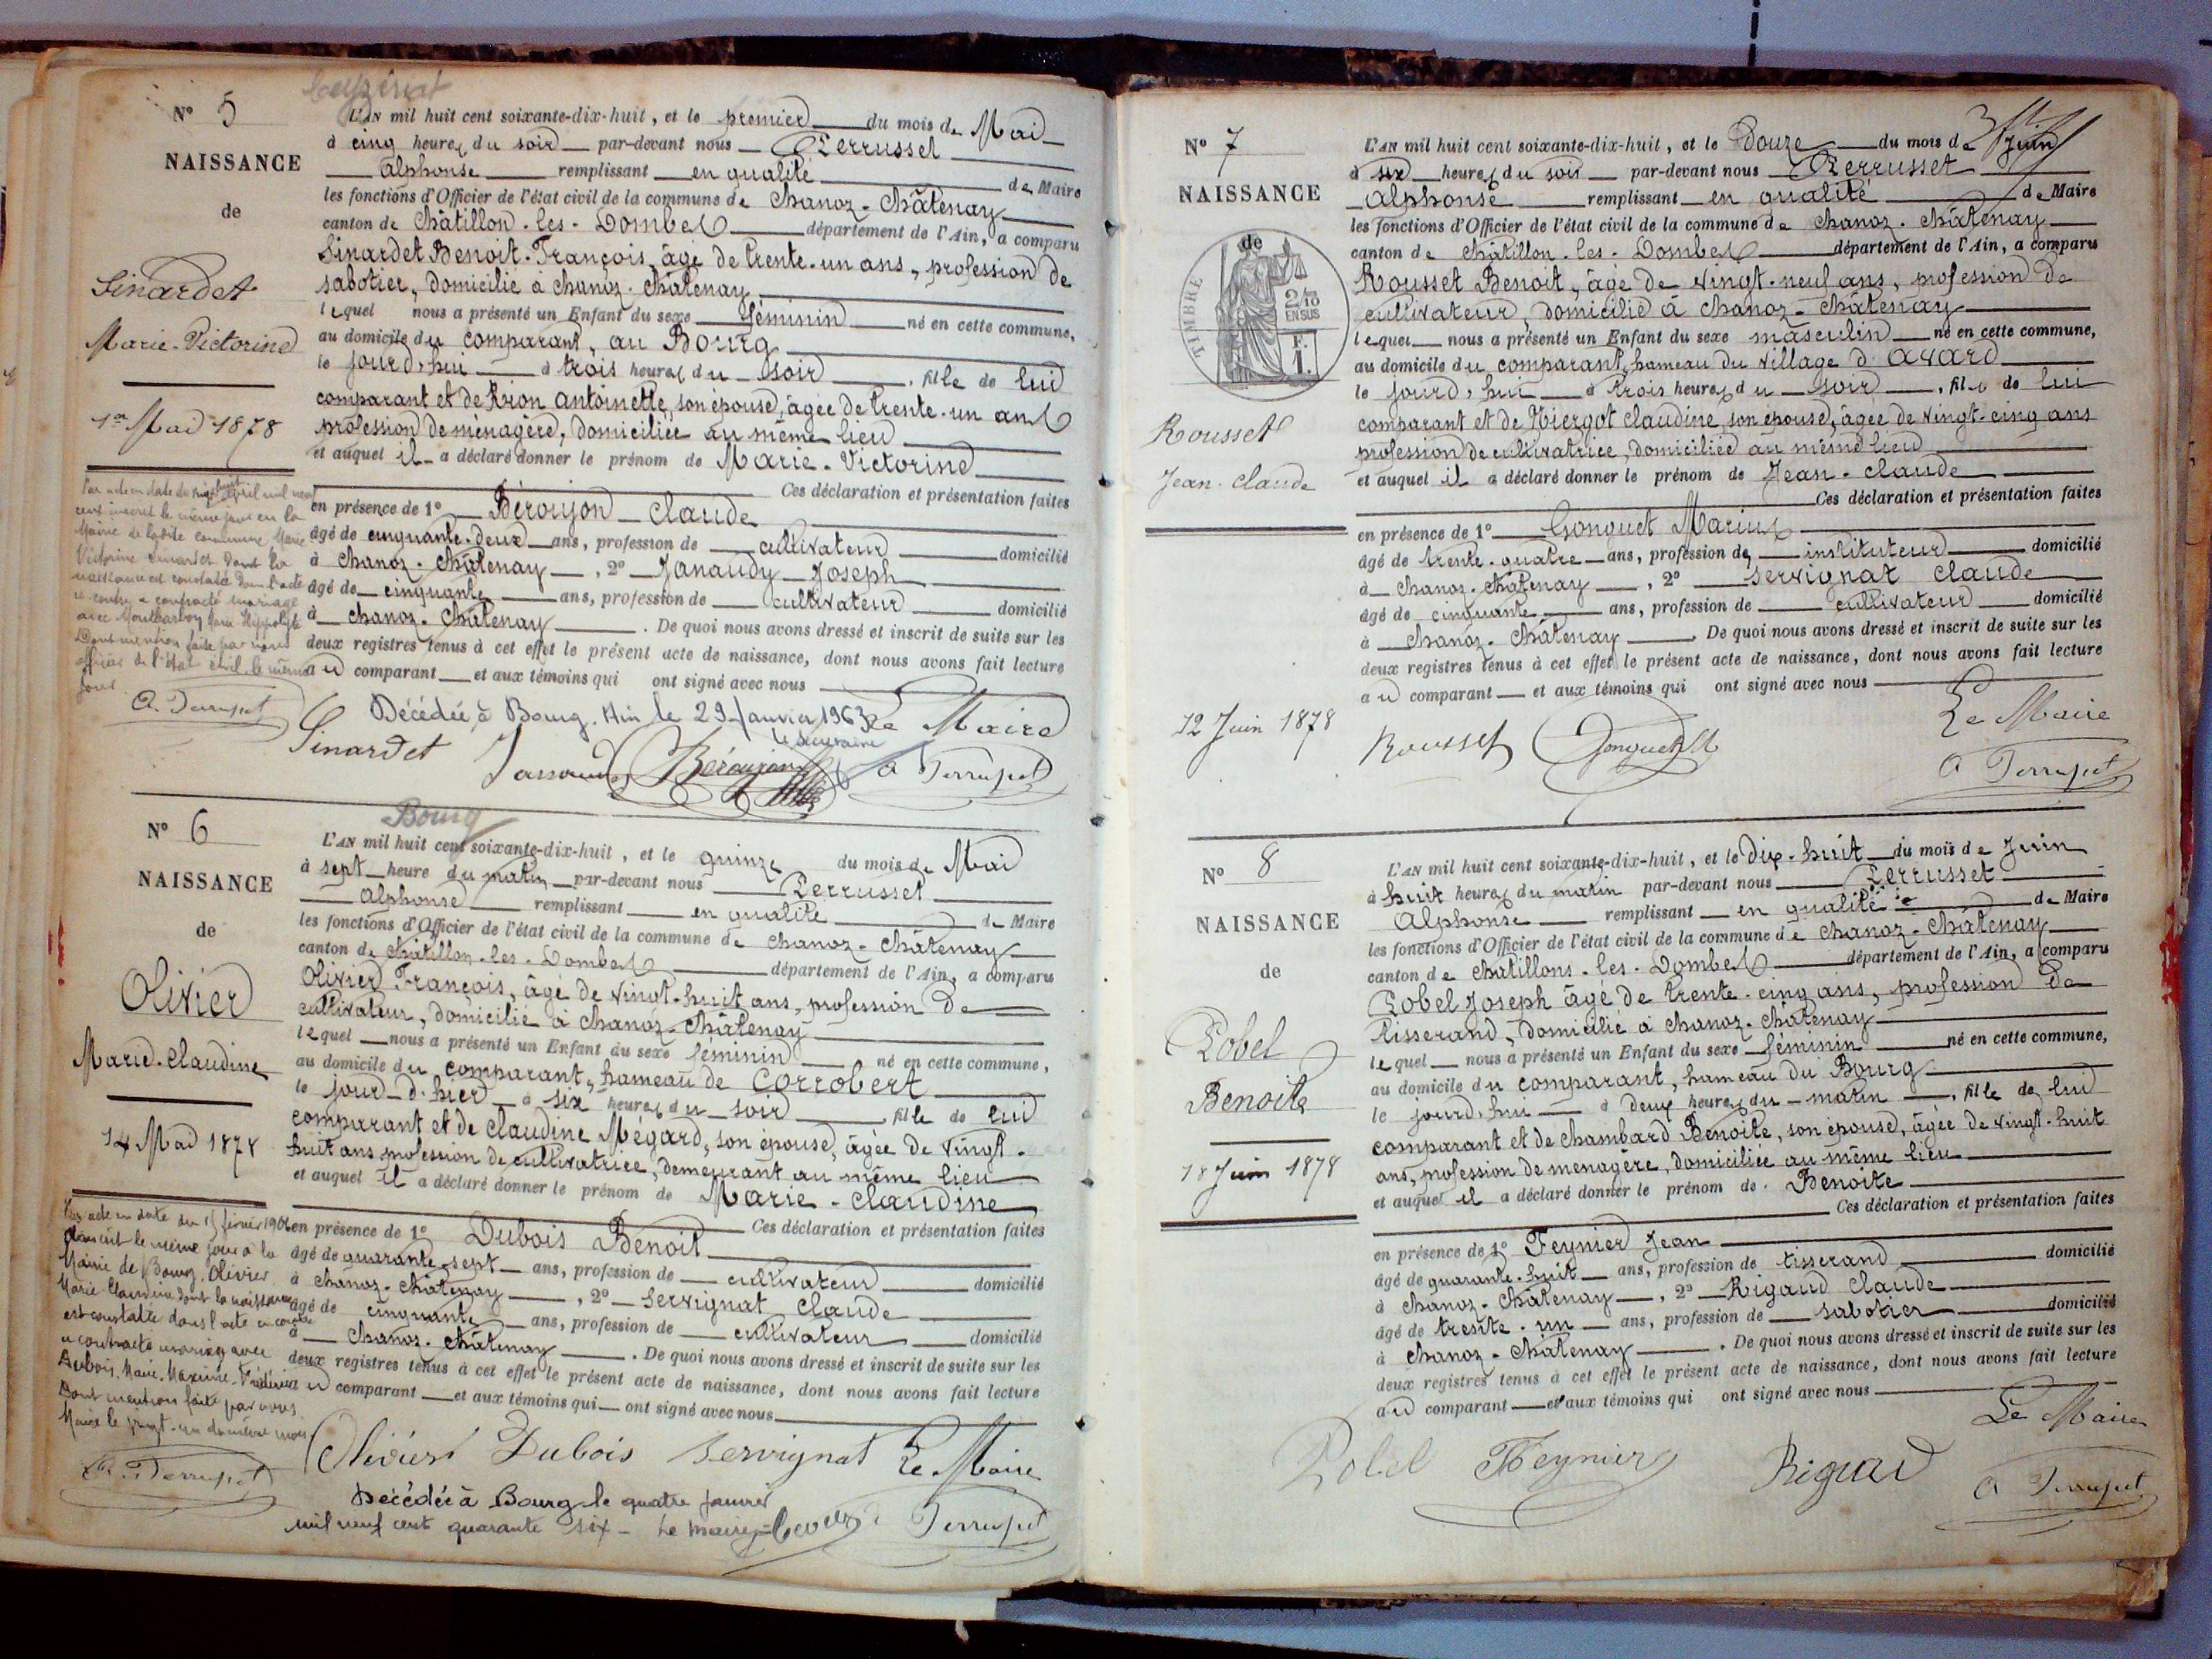 N° 5
NAISSANCE
de
Sinardet
Marie-Victorine
1er Mai 1878
L'AN mil huit cent soixante-dix-huit, et le premier du mois de Mai
à cinq heures du soir par-devant nous Perrusset
Alphonse remplissant en qualité de Maire
les fonctions d'Officier de l'état civil de la commune de Chanoz-Châtenay
canton de Châtillon-les-Dombes département de l'Ain, a comparu
Sinardet Benoit-François, âgé de trente-un ans, profession de
sabotier, domicilié à Chanoz-Châtenay
lequel nous a présenté un Enfant du sexe féminin né en cette commune,
au domicile du comparant, au Bourg
le jourd'hui à trois heures du soir, fille de lui
comparant et de Rion Antoinette, son épouse, âgée de trente-un ans
profession de menagère, domiciliée au même lieu
et auquel il a déclaré donner le prénom de Marie-Victorine
Ces déclaration et présentation faites
en présence de 1° Béroujon Claude
âgé de cinquante-deux ans, profession de cultivateur domicilié
à Chanoz-Châtenay, 2° Janaudy Joseph
âgé de cinquante ans, profession de cultivateur domicilié
à Chanoz-Châtenay. De quoi nous avons dressé et inscrit de suite sur les
deux registres tenus à cet effet le présent acte de naissance, dont nous avons fait lecture
au comparant et aux témoins qui ont signé avec nous
Mairie de ladite commune Marie
Victorine Sinardet dont la
naissance est constatée dans l'acte
ci-contre a contracté mariage
Dont mention faite par nous
officier de l'état civil le même
jour.
A. Perrusset
Décédée à Bourg, Ain le 29 Janvier 1963
Le secrétaire
Le Maire
Sinardet Béroujon A Perrusset
N° 6
NAISSANCE
de
Olivier
Marie-Claudine
14 Mai 1878
Bourg
L'AN mil huit cent soixante-dix-huit, et le quinze du mois de Mai
à sept heure du matin par-devant nous Perrusset
Alphonse remplissant en qualité de Maire
les fonctions d'Officier de l'état civil de la commune de Chanoz-Châtenay
canton de Châtillon-les-Dombes département de l'Ain, a comparu
Olivier François, âgé de vingt-huit ans, profession de
cultivateur, domicilié à Chanoz-Châtenay
lequel nous a présenté un Enfant du sexe féminin né en cette commune,
au domicile du comparant, hameau de Corrobert
le jour d'hier à six heures du soir, fille de lui
comparant et de Claudine Mégard, son épouse, âgée de vingt-
huit ans profession de cultivatrice, demeurant au même lieu
et auquel il a déclaré donner le prénom de Marie-Claudine
Ces déclaration et présentation faites
en présence de 1° Dubois Benoit
âgé de quarante-sept ans, profession de cultivateur domicilié
à Chanoz-Châtenay, 2° Servignat Claude
âgé de cinquante ans, profession de cultivateur domicilié
à Chanoz-Châtenay. De quoi nous avons dressé et inscrit de suite sur les
deux registres tenus à cet effet le présent acte de naissance, dont nous avons fait lecture
au comparant et aux témoins qui ont signé avec nous
le même jour à la
Mairie de Bourg, Olivier
Marie-Claudine dont la naissance
est constatée dans l'acte ci-contre
a contracté mariage avec
Dubois, Marie, Maxime, Frédéric
Dont mention faite par nous
Maire le vingt-un du même mois
A. Perrusset
Olivier Dubois Servignat Le Maire
Décédée à Bourg le quatre janvier
mil neuf cent quarante six - Le Maire
A Perrusset
N° 7
NAISSANCE
de
TIMBRE
2/10
EN SUS
F.
1.
Rousset
Jean-Claude
12 Juin 1878
L'AN mil huit cent soixante-dix-huit, et le Douze du mois de Juin
à six heures du soir par-devant nous Perrusset
Alphonse remplissant en qualité de Maire
les fonctions d'Officier de l'état civil de la commune de Chanoz-Châtenay
canton de Châtillon-les-Dombes département de l'Ain, a comparu
Rousset Benoit, âgé de vingt-neuf ans, profession de
cultivateur, domicilié à Chanoz-Châtenay
lequel nous a présenté un Enfant du sexe masculin né en cette commune,
au domicile du comparant, hameau du village d'Avard
le jourd'hui à trois heures du soir, fils de lui
comparant et de Claudine, son épouse, âgée de vingt-cinq ans
profession de cultivatrice, domiciliée au même lieu
et auquel il a déclaré donner le prénom de Jean-Claude
Ces déclaration et présentation faites
en présence de 1° Gonguet Marius
âgé de trente-quatre ans, profession de instituteur domicilié
à Chanoz-Châtenay, 2° Servignat Claude
âgé de cinquante ans, profession de cultivateur domicilié
à Chanoz-Châtenay. De quoi nous avons dressé et inscrit de suite sur les
deux registres tenus à cet effet le présent acte de naissance, dont nous avons fait lecture
au comparant et aux témoins qui ont signé avec nous
Le Maire
Rousset Gonguet A Perrusset
N° 8
NAISSANCE
de
Pobel
Benoite
18 Juin 1878
L'AN mil huit cent soixante-dix-huit, et le Dix-huit du mois de Juin
à huit heures du matin par-devant nous Perrusset
Alphonse remplissant en qualité de Maire
les fonctions d'Officier de l'état civil de la commune de Chanoz-Châtenay
canton de Châtillons-les-Dombes département de l'Ain, a comparu
Pobel Joseph âgé de trente-cinq ans, profession de
tisserand, domicilié à Chanoz-Châtenay
lequel nous a présenté un Enfant du sexe féminin né en cette commune,
au domicile du comparant, hameau du Bourg
le jourd'hui à deux heures du matin, fille de lui
comparant et de Chambard Benoite, son épouse, âgée de vingt-huit
ans, profession de menagère, domiciliée au même lieu
et auquel il a déclaré donner le prénom de Benoite
Ces déclaration et présentation faites
en présence de 1° Feynier Jean
âgé de quarante-huit ans, profession de tisserand domicilié
à Chanoz-Châtenay, 2° Rigaud Claude
âgé de trente-un ans, profession de sabotier domicilié
à Chanoz-Châtenay. De quoi nous avons dressé et inscrit de suite sur les
deux registres tenus à cet effet le présent acte de naissance, dont nous avons fait lecture
au comparant et aux témoins qui ont signé avec nous
Le Maire
Pobel Feynier Rigaud A Perrusset